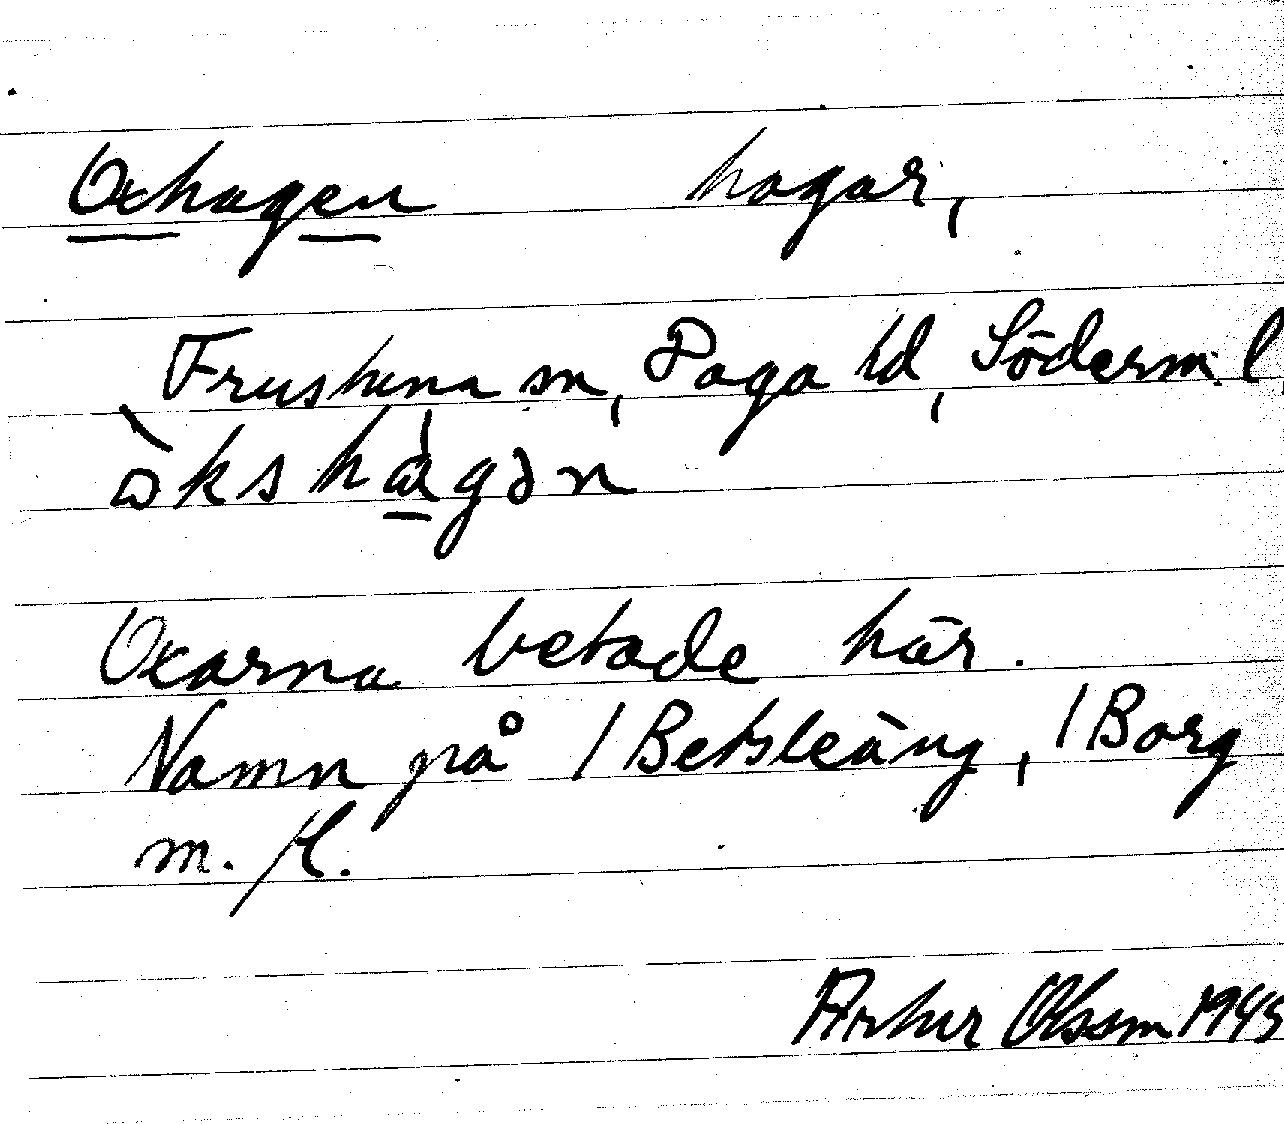 Oxhagen hagar,
Frustuna sn, Daga hd, Söderm. l
òkshàgən
Oxarna betade här.
Namn på / Betsleäng, / Borg
m. fl.
Arthur Olsson 1943